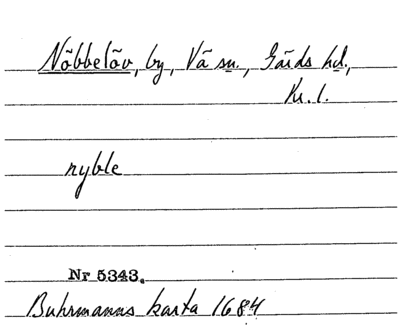 Nöbbelöv, by, Vä sn., Gärds hd,
Kr. l.
nyble
Nr 5343.
Buhrmanns karta 1684